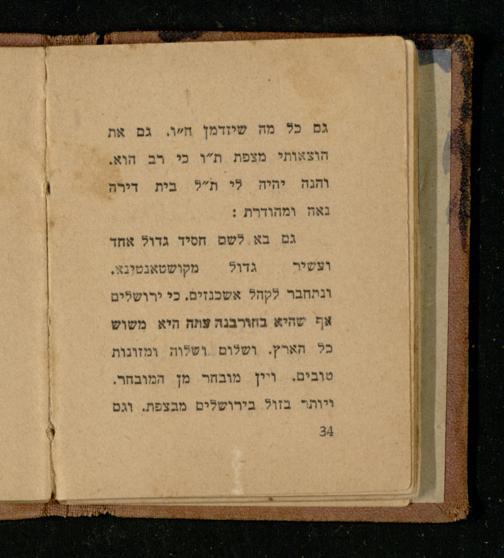 גם כל מה שיזדמן ח״ו. גם את
הוצאותי מצפת ת״ו כי רב הוא.
והנה יהיה לי ת״ל בית דירה
נאה ומהודרת :
גם בא לשם חסיד גדול אחד
ועשיר גדול מקושטאנטינא.
ונתחבר לקהל אשכנזים. כי ירושלים
אף שהיא בחורבנה עתה היא משוש
כל הארץ. ושלום ושלוה ומזונות
טובים. ויין מובחר מן המובחר.
ויותר בזול בירושלים מבצפת. וגם
34